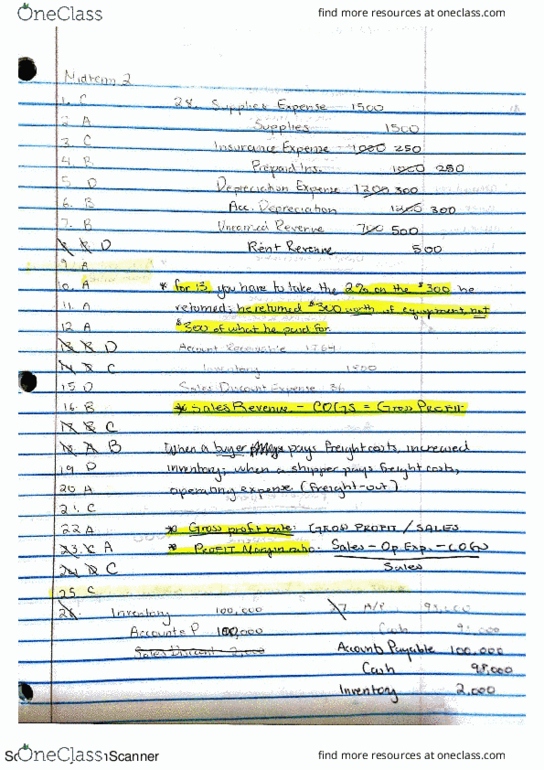 OneClass
find more resources at oneclass.com
Midterm 2
1. C 28. Supplies Expense 1500
2. A Supplies 1500
3. C Insurance Expense 1000 250
4. B Prepaid Ins. 1000 250
5. D Depreciation Expense 1200 300
6. B Acc. Depreciation 1200 300
7. B Unearned Revenue 700 500
D Rent Revenue 500
9. A
10. A * for 13, you have to take the 2% on the $300 he
11. A returned; he returned $300 worth of equipment, not
12 A $300 of what he paid for.
D Account Receivable 1764
C Inventory 1800
15 D Sales Discount Expense 36
16. B * Sales Revenue - COGS = Gross Profit
C
B When a buyer pays freight costs, increased
19 D inventory; when a shipper pays freight costs,
20 A operating expense (freight-out)
21. C
22 A * Gross profit rate: GROSS PROFIT / SALES
23. C A * PROFIT Margin ratio: Sales - Op Exp. - COGS
C Sales
25. C
26. Inventory 100,000 27 A/P
Accounts P 100,000 Cash
Sales Discount 2,000 Accounts Payable 100,000
Cash 98,000
Inventory 2,000
OneClass
Scanner
find more resources at oneclass.com